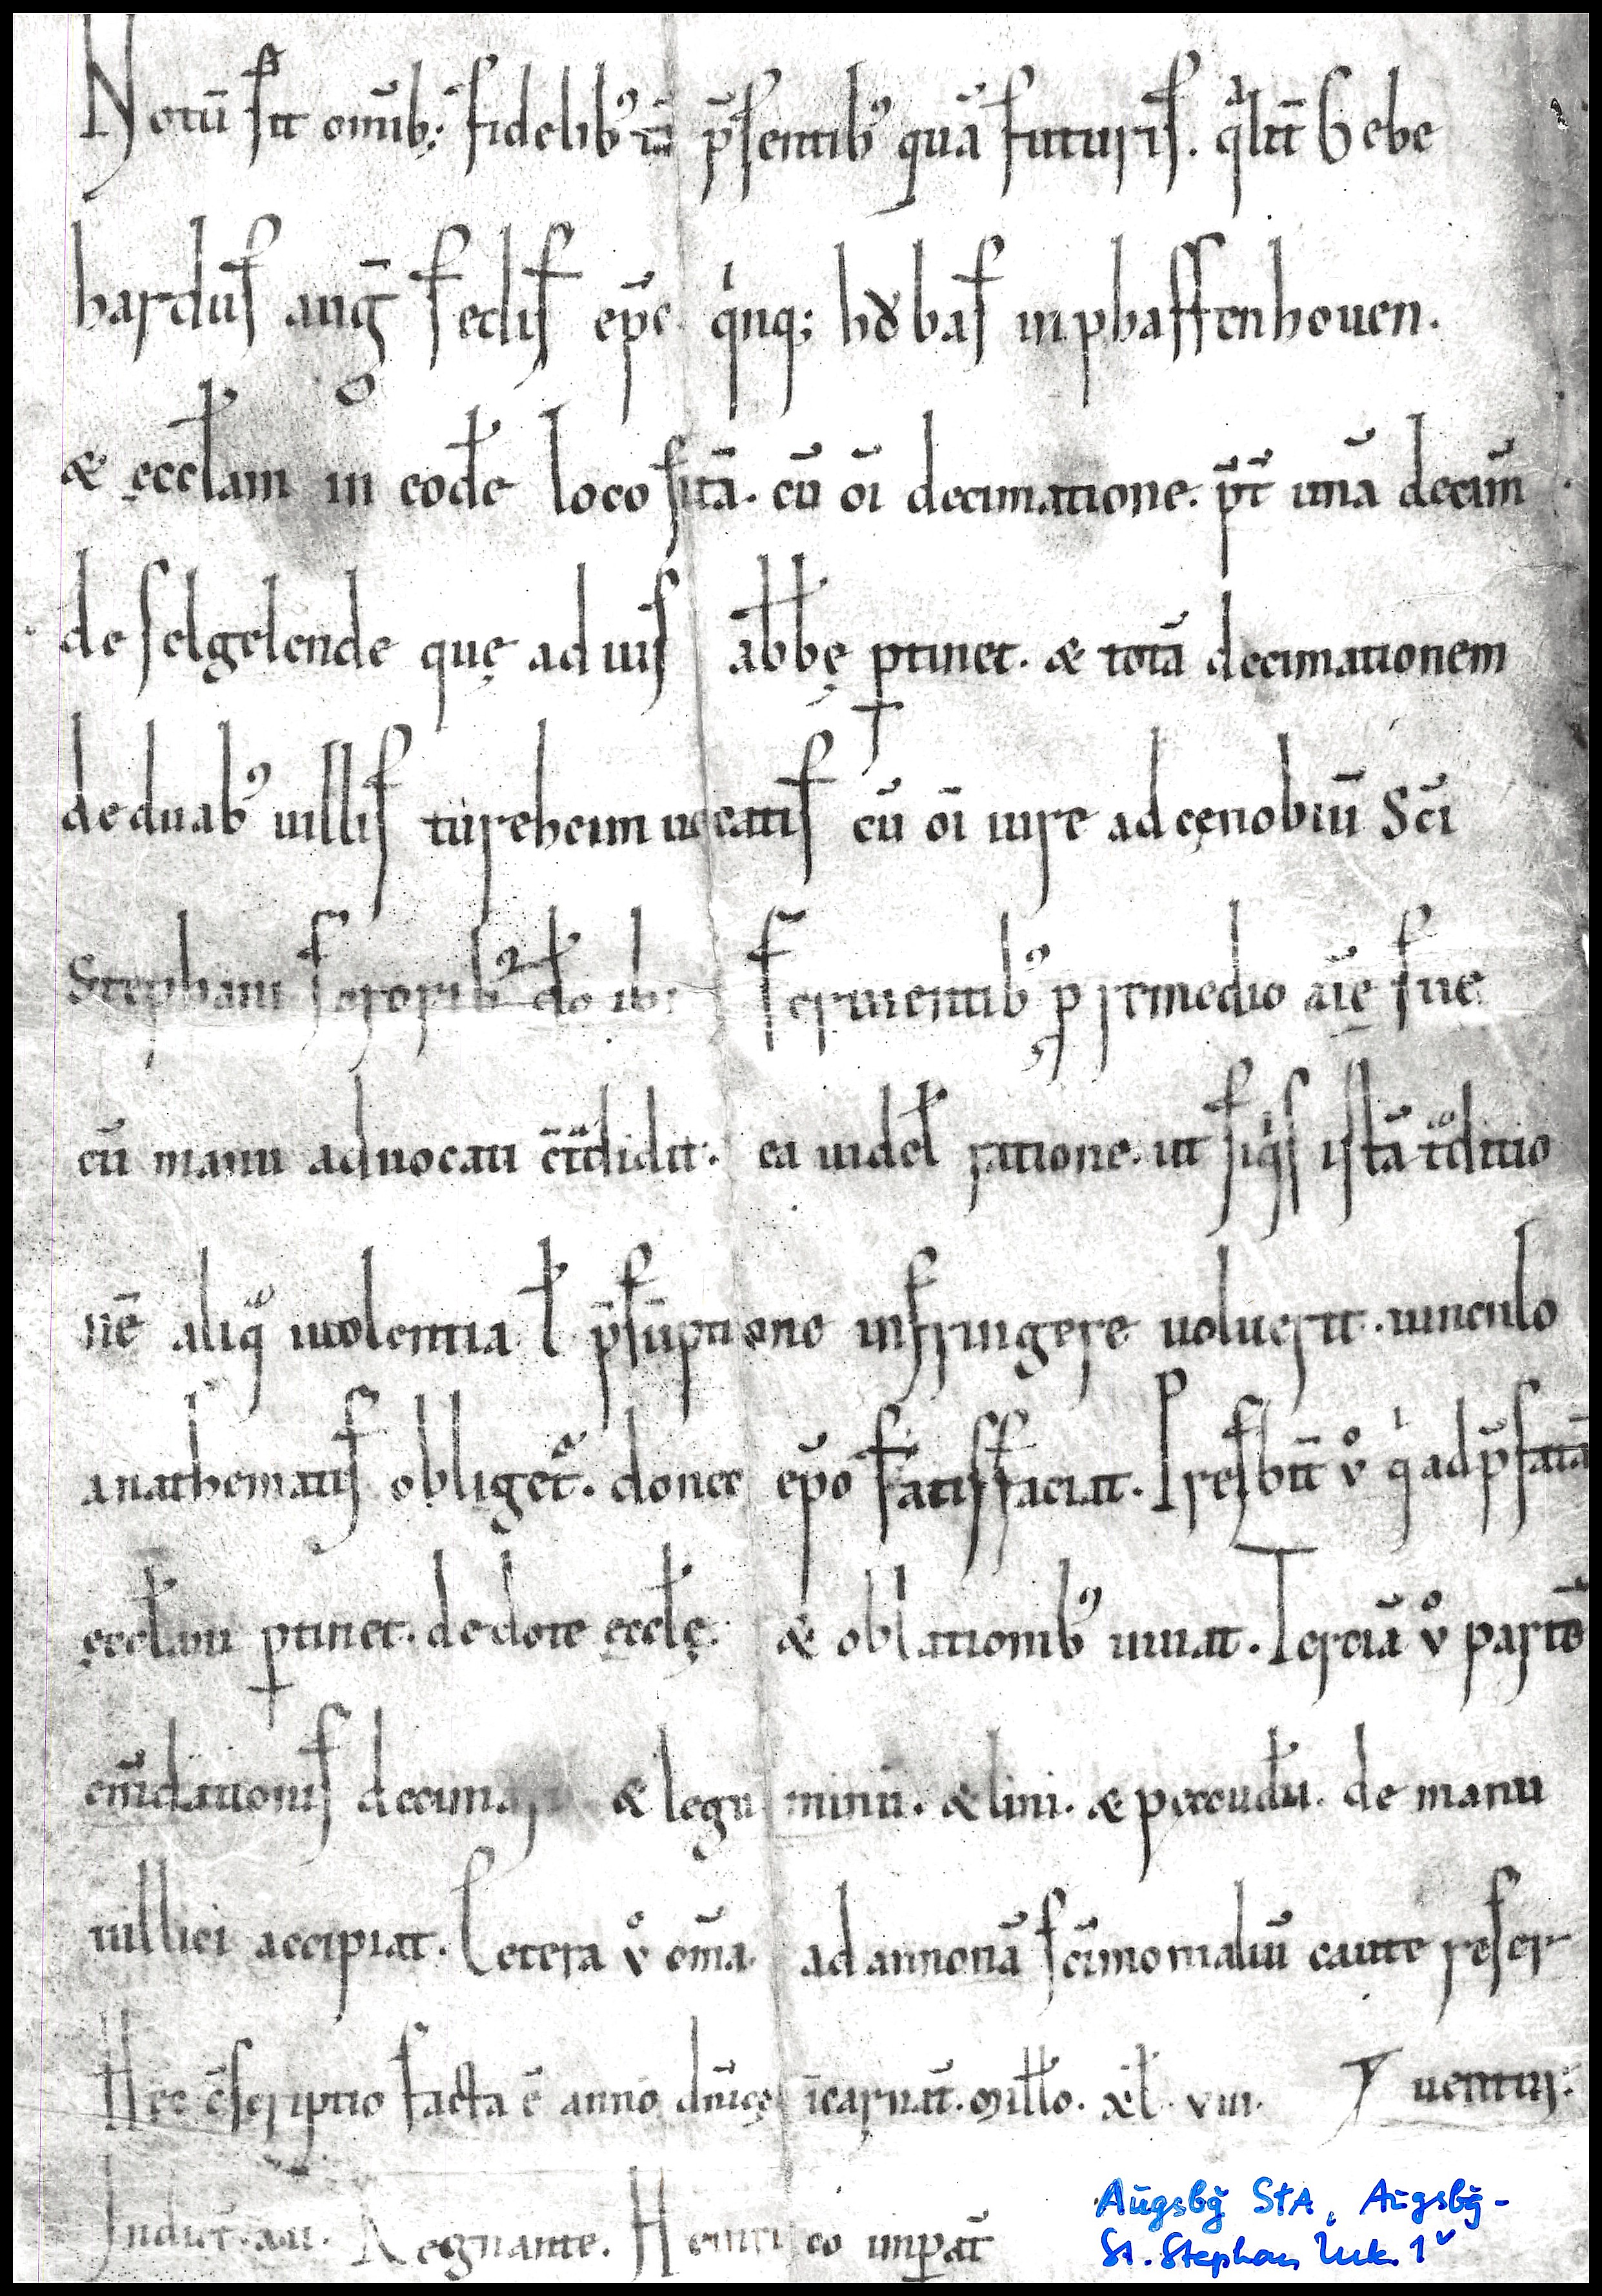 Notū sit om̄ib; fidelib⁹ tā p̄sentib⁹ quā futuris. qͣlit̄ Hebe
hardus auḡ sedis ep̄c qͥnq; hobas in phaffenhouen.
& ęccƚam in eodē loco sitā. cū oı̄ decimatione. p̄t̄ unā decim̄
de selgelende quę ad uıſ abƀę ꝑtinet. & totā decimationem
de duab⁹ uillis túreheim uocatis cū oı̄ iure ad cęnobiū Sc̄i
Stephani sororib⁹ dō ibi seruientib⁹ ꝓ remedio aı̄ę suę
cū manu aduocati c̄tͣdidit. ea uideƚ ratione. ut siqͥs istā tͣditio
nē aliqͣ uiolentia ƚ p̄sūptione infringere uoluerit. uinculo
anathematis obliget̄. donec ep̄o satisfaciat. Presbit̄ v̊ qͥ ad p̄fatā
ęccƚam ꝑtinet. de dote ęccƚę. & oblationib⁹ uiuat. Terciā v̊ partē
em̄dationis decimarū & legu minū. & lini. & pecudū. de manu
uillici accipiat. Cetera v̊ om̄a. ad annonā sc̄imonialiū caute reser
Hęc c̄scriptio facta ē anno dn̄icę ı̄carnat̄. Miƚƚo. xƚ. viii. uentur.
Indict̄. Regnante. Heinrico imꝑat̄
Augsbg StA, Augsbg-
St. Stephan Urk. 1ᵛ